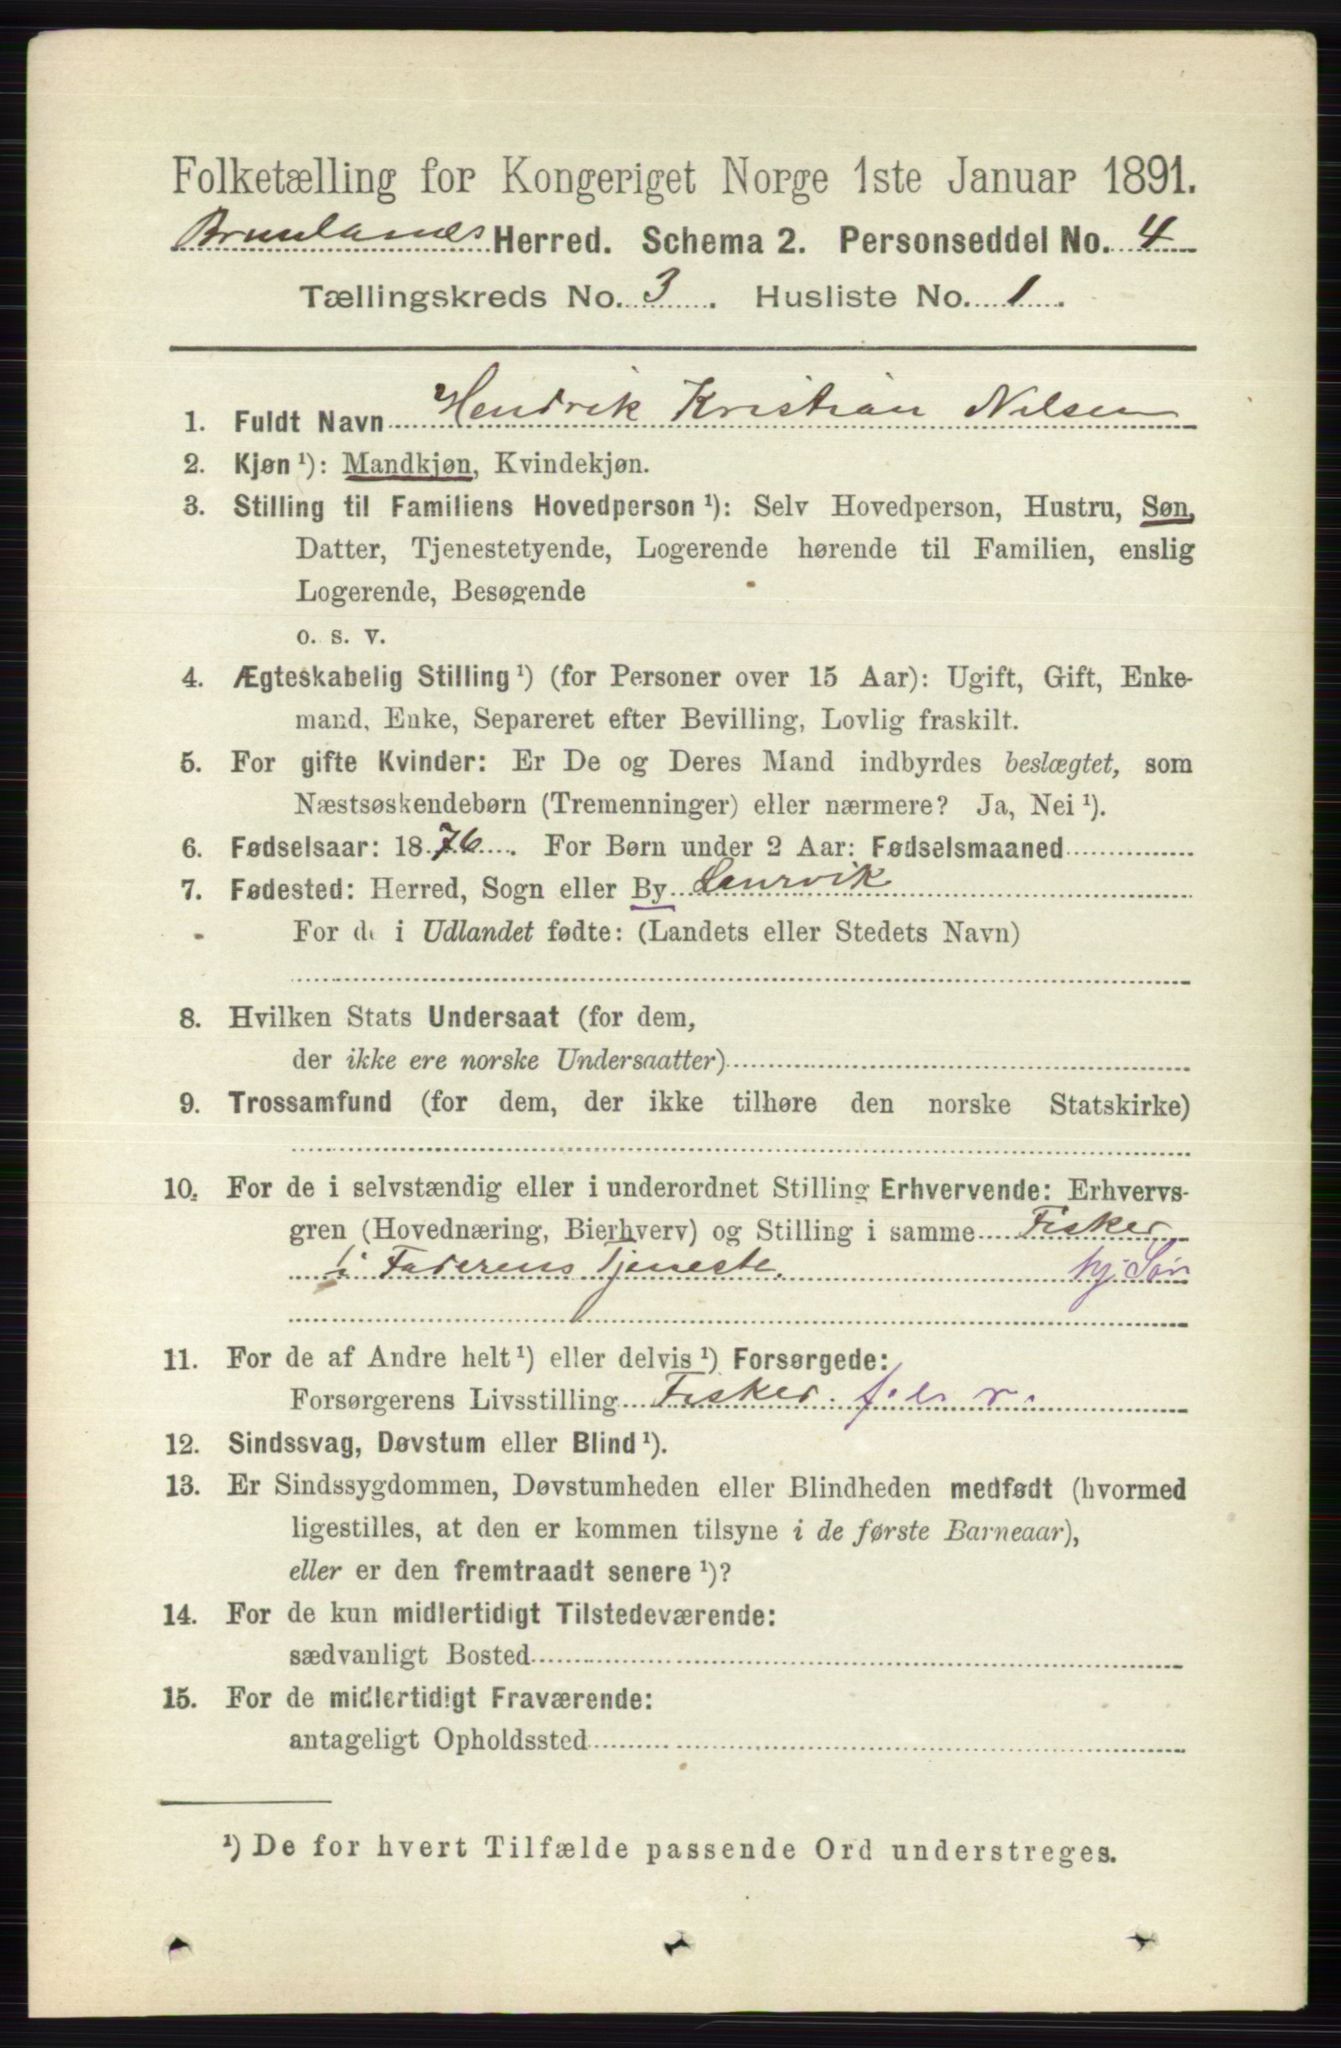 Folketælling for Kongeriget Norge 1ste Januar 1891.
Brunlanes Herred. Schema 2. Personseddel No. 4
Tællingskreds No. 3. Husliste No. 1.
1. Fuldt Navn Hendrik Kristian Nilsen
2. Kjøn ¹): Mandkjøn, Kvindekjøn.
3. Stilling til Familiens Hovedperson ¹): Selv Hovedperson, Hustru, Søn,
Datter, Tjenestetyende, Logerende hørende til Familien, enslig
Logerende, Besøgende
o. s. v.
4. Ægteskabelig Stilling ¹) (for Personer over 15 Aar): Ugift, Gift, Enke-
mand, Enke, Separeret efter Bevilling, Lovlig fraskilt.
5. For gifte Kvinder: Er De og Deres Mand indbyrdes beslægtet, som
Næstsøskendebørn (Tremenninger) eller nærmere? Ja, Nei ¹).
6. Fødselsaar: 1876. For Børn under 2 Aar: Fødselsmaaned
7. Fødested: Herred, Sogn eller By Laurvik
For de i Udlandet fødte: (Landets eller Stedets Navn)
8. Hvilken Stats Undersaat (for dem,
der ikke ere norske Undersaatter)
9. Trossamfund (for dem, der ikke tilhøre den norske Statskirke)
10. For de i selvstændig eller i underordnet Stilling Erhvervende: Erhvervs-
gren (Hovednæring, Bierhverv) og Stilling i samme Fisker
i Faderens Tjeneste. hj. Søn
11. For de af Andre helt ¹) eller delvis ¹) Forsørgede:
Forsørgerens Livsstilling Fisker.
12. Sindssvag, Døvstum eller Blind ¹).
13. Er Sindssygdommen, Døvstumheden eller Blindheden medfødt (hvormed
ligestilles, at den er kommen tilsyne i de første Barneaar),
eller er den fremtraadt senere ¹)?
14. For de kun midlertidigt Tilstedeværende:
sædvanligt Bosted
15. For de midlertidigt Fraværende:
antageligt Opholdssted
¹) De for hvert Tilfælde passende Ord understreges.